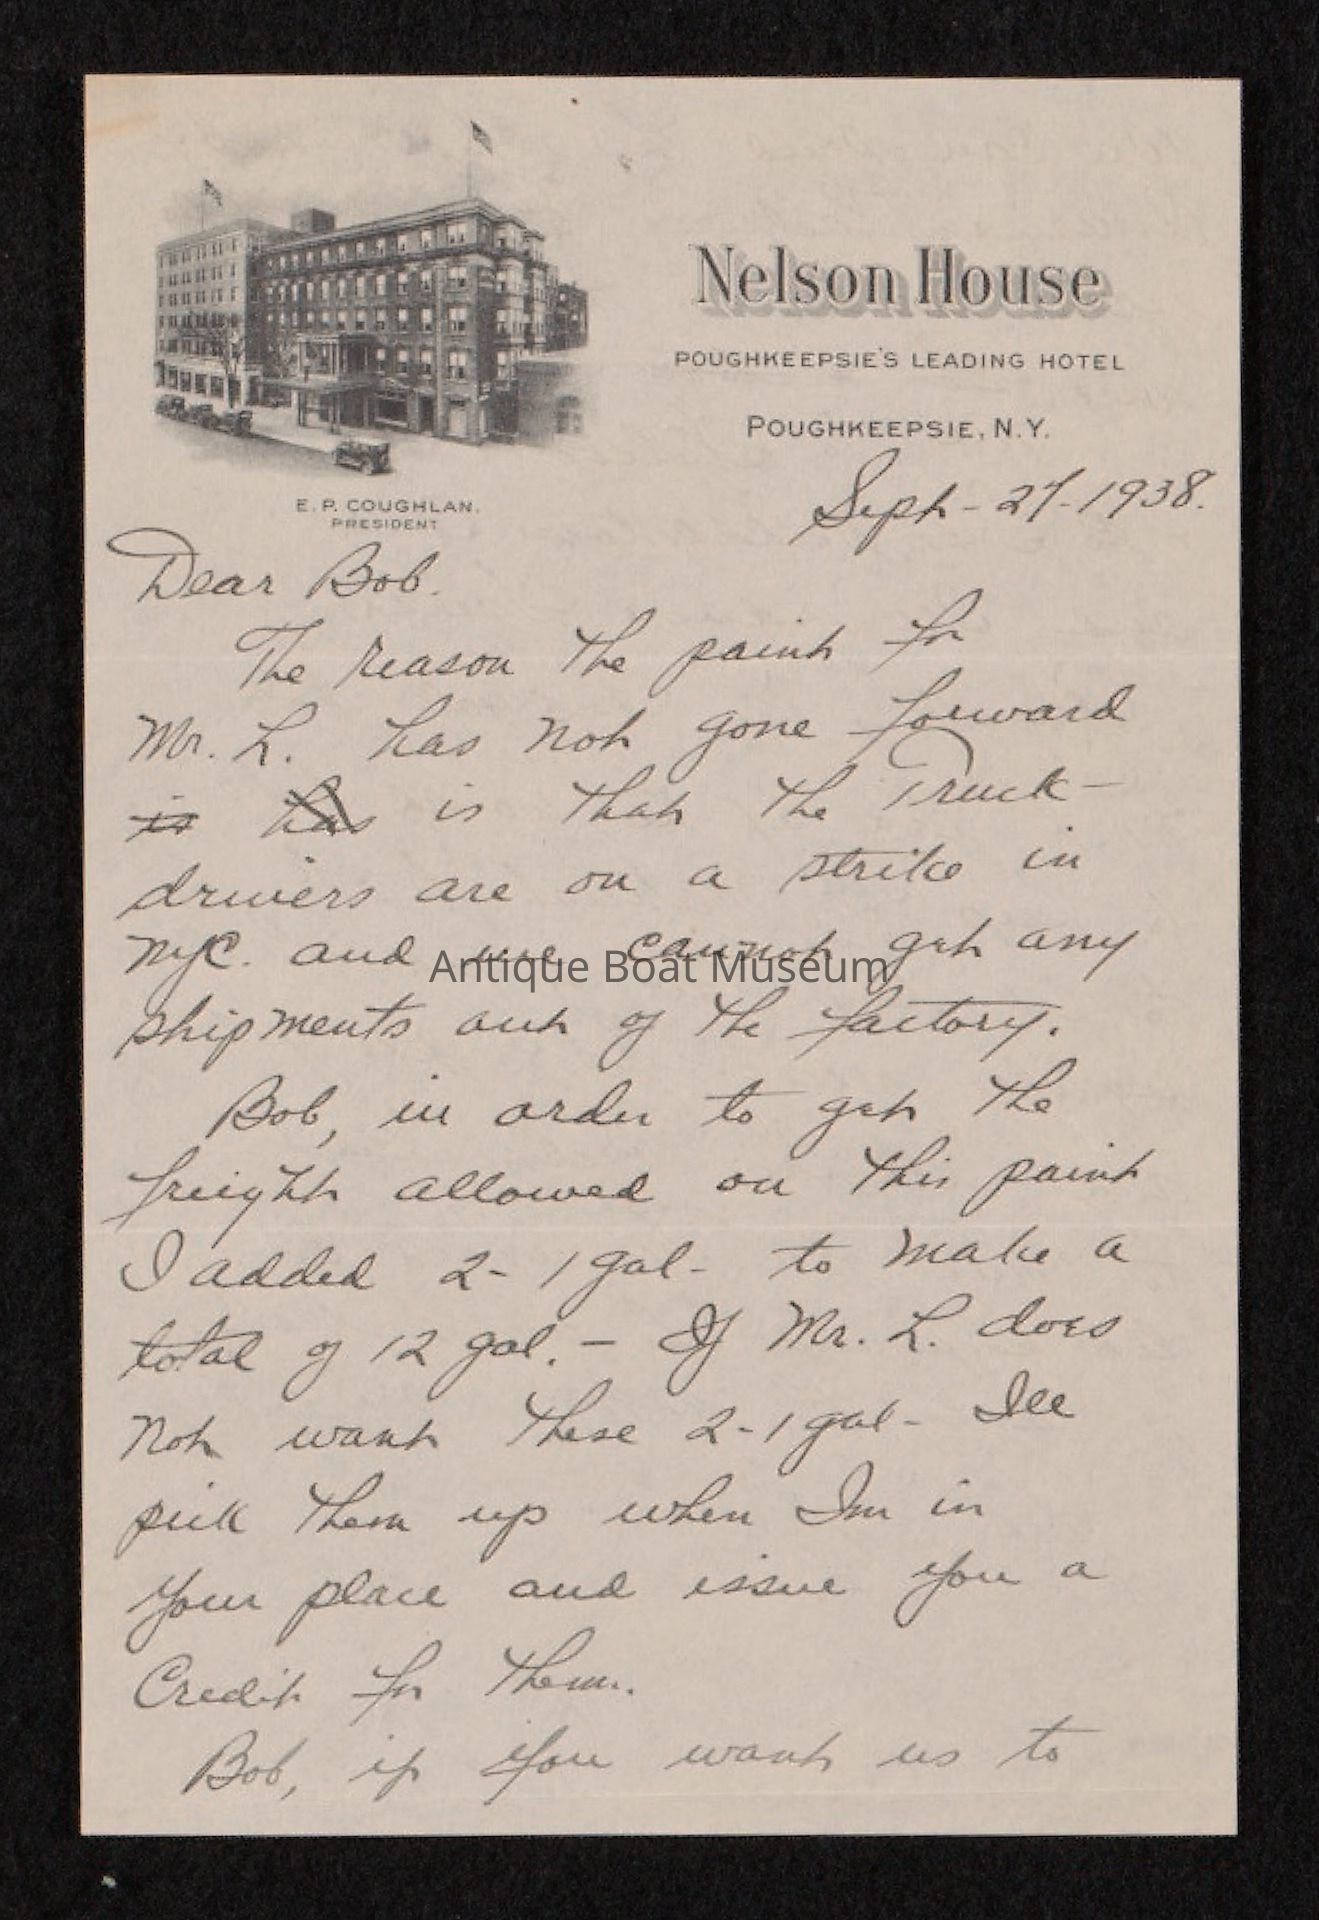 Nelson House
POUGHKEEPSIE'S LEADING HOTEL
POUGHKEEPSIE, N.Y.
E. P. COUGHLAN.
PRESIDENT
Sept - 27 - 1938.
Dear Bob.
The reason the paint for
Mr. L. has not gone forward
is has is that the Truck-
drivers are on a strike in
NYC. and we cannot get any
shipments out of the factory.
Bob, in order to get the
freight allowed on this paint
I added 2- 1 gal- to make a
total of 12 gal. - If Mr. L. does
not want these 2-1 gal- Ill
pick them up when Im in
your place and issue you a
Credit for them.
Bob, if you want us to
Antique Boat Museum